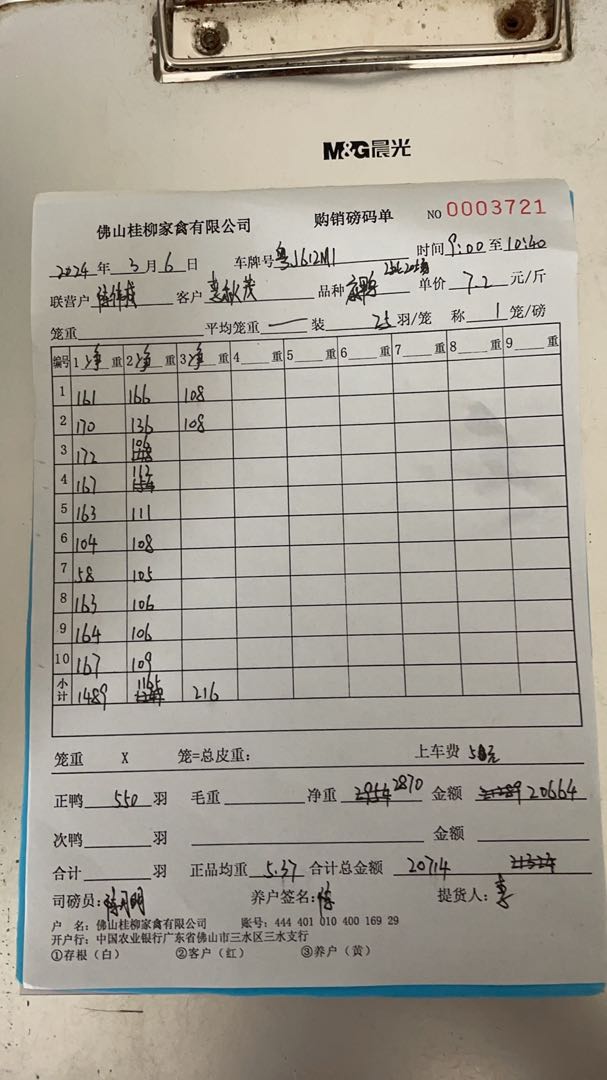 M&G晨光
佛山桂柳家禽有限公司 购销磅码单 NO 0003721
2024年 3月 6日 车牌号 粤J612M1 时间 9:00 至 10:40
联营户 客户 品种 单价 7.2 元/斤
笼重 平均笼重 一 装 25 羽/笼 称 1 笼/磅
编号 1 净 重 2 净 重 3 净 重 4 重 5 重 6 重 7 重 8 重 9 重
1 161 166 108
2 170 136 108
3 172 106
4 167 112
5 163 111
6 104 108
7 58 105
8 163 106
9 164 106
10 167 109
小计 1489 1165 216
笼重 X 笼=总皮重: 上车费 50元
正鸭 550 羽 毛重 净重 2954 2870 金额 20664
次鸭 羽 金额
合计 羽 正品均重 5.37 合计总金额 20714 21324
司磅员: 养户签名: 陈 提货人:
户 名: 佛山桂柳家禽有限公司 账号: 444 401 010 400 169 29
开户行: 中国农业银行广东省佛山市三水区三水支行
①存根(白) ②客户(红) ③养户(黄)